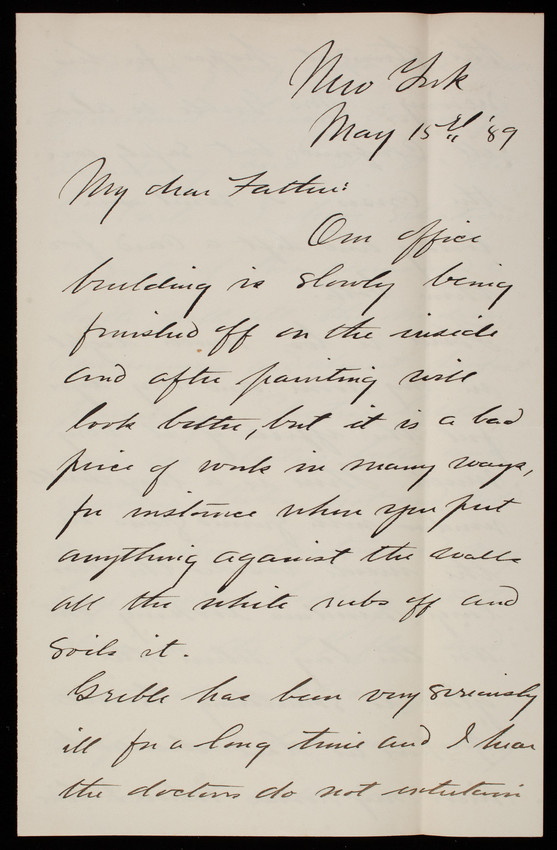 New York
May 15" '89
My dear Father:
Our office
building is slowly being
finished off on the inside
and after painting will
look better, but it is a bad
piece of work in many ways,
for instance when you put
anything against the walls
all the white rubs off and
soils it.
Greble has been very seriously
ill for a long time and I hear
the doctors do not entertain